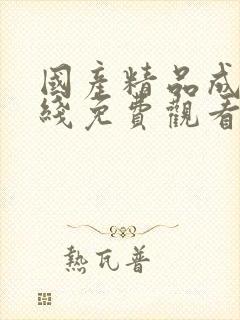 國產精品成
綫免費觀看
熱瓦普